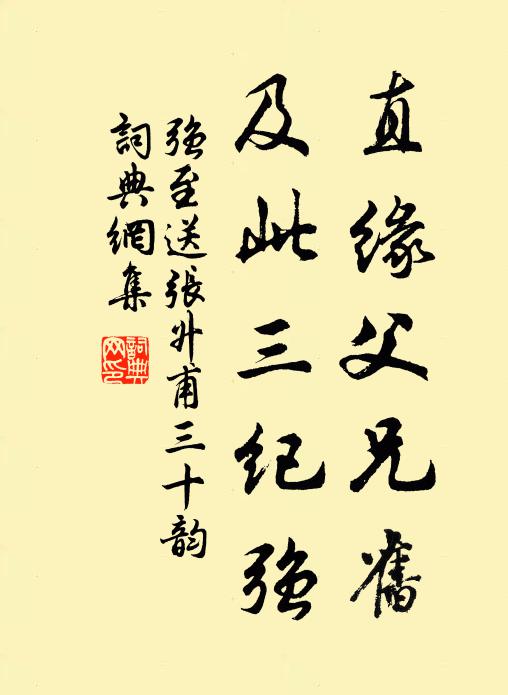 直缘父兄舊
及此三纪强
强至送張升甫三十韵
詞典網集
詞典
网印